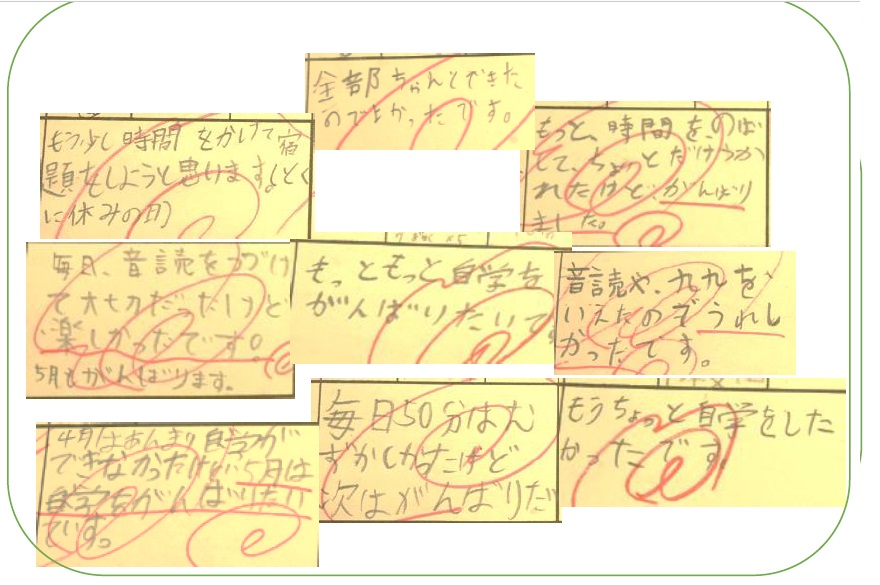 全部ちゃんとできた
のでよかったです。
もう少し時間をかけて宿
題をしようと思います。(とく
に休みの日)
もっと、時間を、のば
して、ちょっとだけうか
れたけど、がんばり
ました。
毎日、音読をつづけ
て大セカだったけど
楽しかったです。
5月もがんばります。
もっともっと自学を
がんばりたいです
音読や、九九を、
いえたのぞうれし
かったです。
4月はあんまり自学が
できなかったけど5月は
自学をがんばりたい
です。
毎日50分はむ
ずかしかったけど
次はがんばりた
もうちょっと自学をした
かったです。